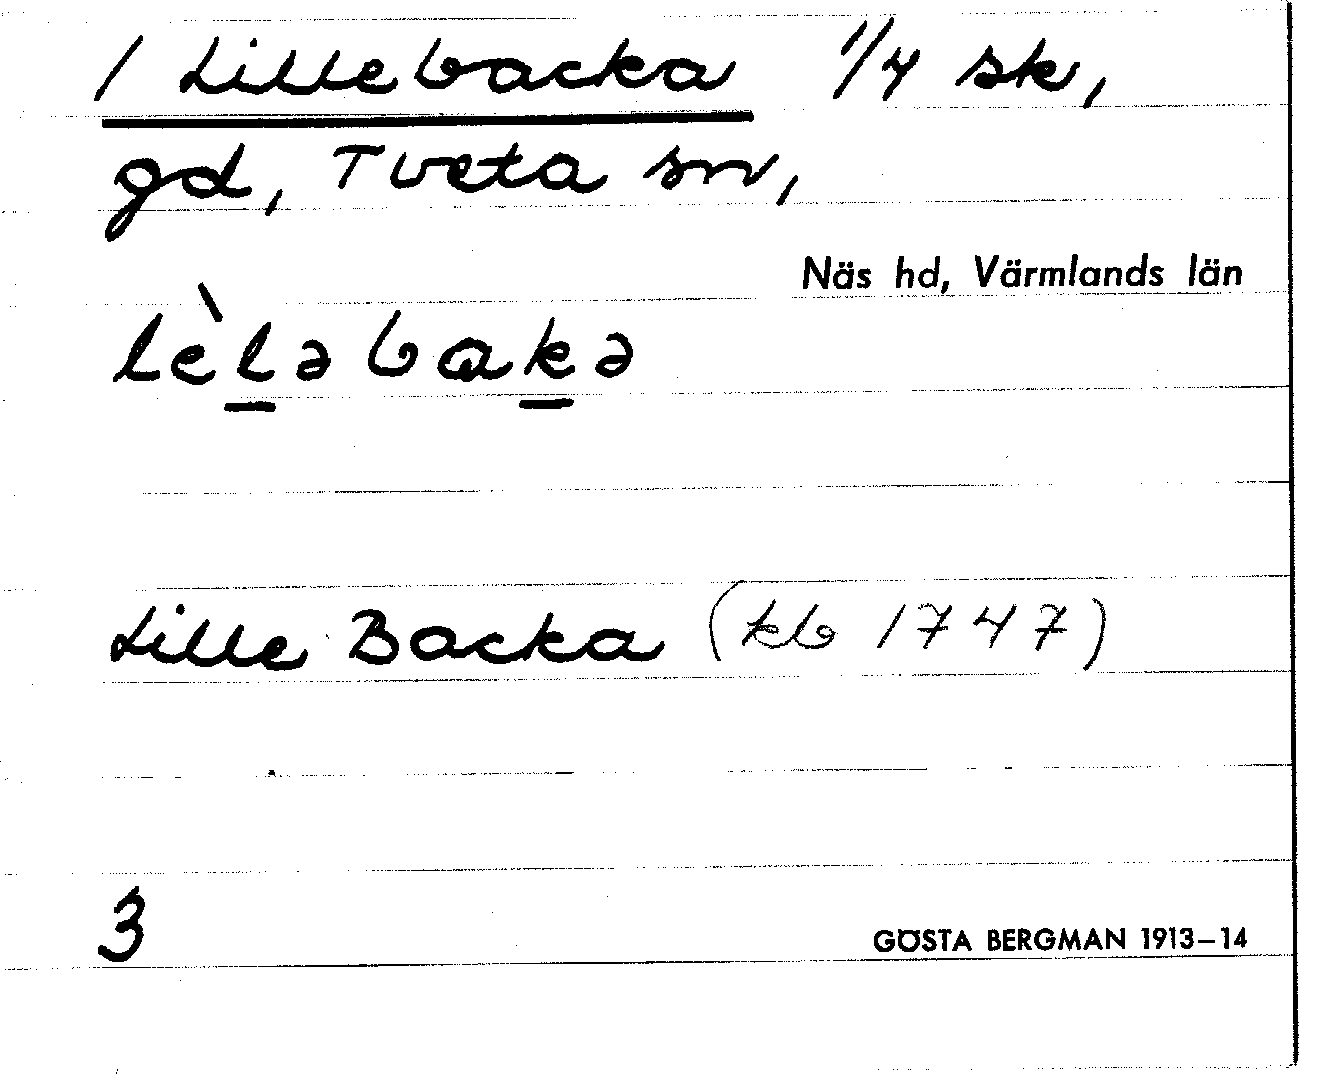 / Lillebacka 1/4 sk,
gd, Tveta sn,
Näs hd, Värmlands län
lèlə bakə
Lille Backa (kb 1747)
3
GÖSTA BERGMAN 1913–14